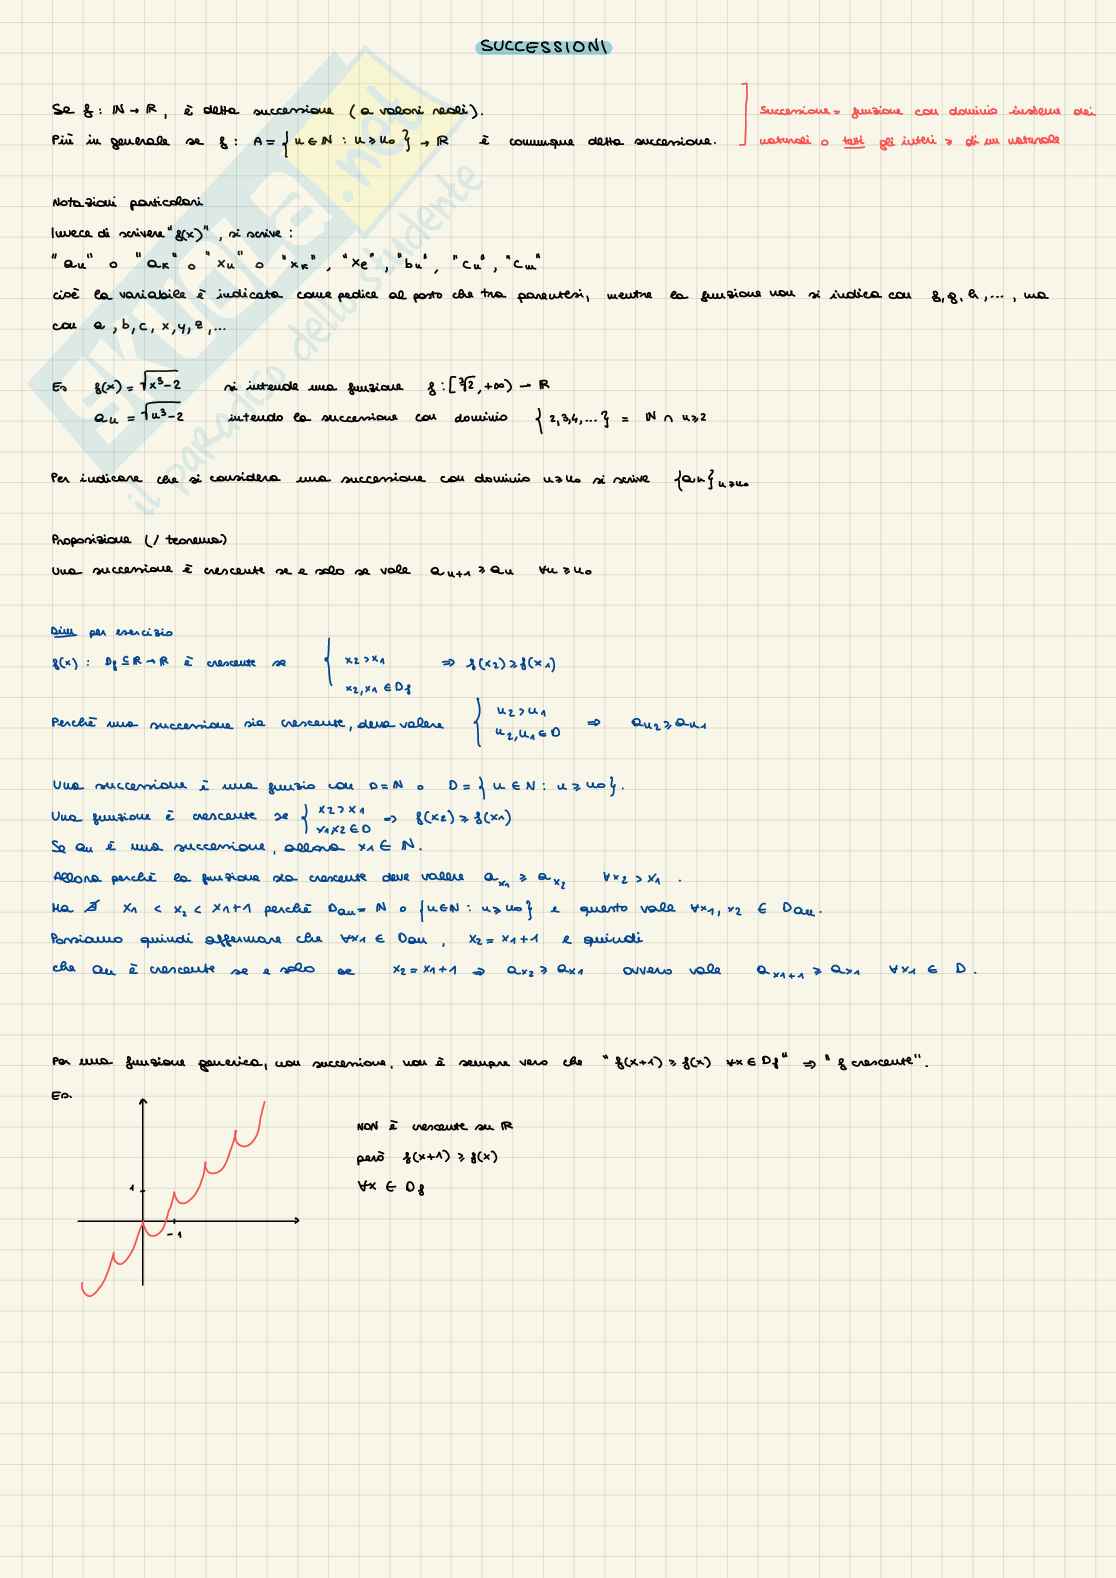 SUCCESSIONI
Se f: ℕ → ℝ, è detta successione (a valori reali).
Più in generale se f: A = {n ∈ ℕ : n ≥ n₀} → ℝ è comunque detta successione.
Successione = funzione con dominio insieme dei
naturali o tutti gli interi ≥ di un naturale
Notazioni particolari
Invece di scrivere "f(x)", si scrive:
"aₙ" o "aₖ" o "xₙ" o "xₖ", "xₑ", "bₙ", "cₙ", "cₘ"
cioè la variabile è indicata come pedice al posto che tra parentesi, mentre la funzione non si indica con f, g, h, ..., ma
con a, b, c, x, y, z, ...
Es f(x) = √(x³-2) si intende una funzione f: [∛2, +∞) → ℝ
aₙ = √(n³-2) intendo la successione con dominio {2,3,4,...} = ℕ ∩ n≥2
Per indicare che si considera una successione con dominio n≥n₀ si scrive {aₙ}ₙ≥ₙ₀
Proposizione (/ teorema)
Una successione è crescente se e solo se vale aₙ₊₁ ≥ aₙ ∀n ≥ n₀
Dim per esercizio
f(x): Df ⊆ ℝ → ℝ è crescente se { x₂ > x₁ ⇒ f(x₂) ≥ f(x₁)
x₂, x₁ ∈ Df
Perchè una successione sia crescente, deve valere { n₂ > n₁ ⇒ aₙ₂ ≥ aₙ₁
n₂, n₁ ∈ D
Una successione è una funzio con D = ℕ o D = {n ∈ ℕ : n ≥ n₀}.
Una funzione è crescente se { x₂ > x₁ ⇒ f(x₂) ≥ f(x₁)
x₁ x₂ ∈ D
Se aₙ è una successione, allora x₁ ∈ ℕ.
Allora perchè la funzione sia crescente deve valere a_x₁ ≥ a_x₂ ∀x₂ > x₁.
Ma ∄ x₁ < x₂ < x₁+1 perchè Daₙ = ℕ o {n∈ℕ : n ≥ n₀} e questo vale ∀x₁, x₂ ∈ Daₙ.
Possiamo quindi affermare che ∀x₁ ∈ Daₙ, x₂ = x₁+1 e quindi
che aₙ è crescente se e solo se x₂ = x₁+1 ⇒ a_x₂ ≥ a_x₁ ovvero vale a_x₁+₁ ≥ a_x₁ ∀x₁ ∈ D.
Per una funzione generica, non successione, non è sempre vero che "f(x+1) ≥ f(x) ∀x ∈ Df" ⇒ "f crescente".
Es.
NON è crescente su ℝ
però f(x+1) ≥ f(x)
∀x ∈ Df
1
-1
SKUOLA.net
il paradiso dello studente